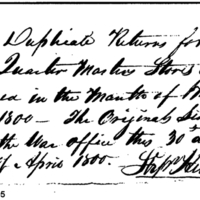 Duplicate Returns for
Quarter Masters Stores
ed in the Month of M
1800 — The Original
the War office this 30th
of April 1800.
5